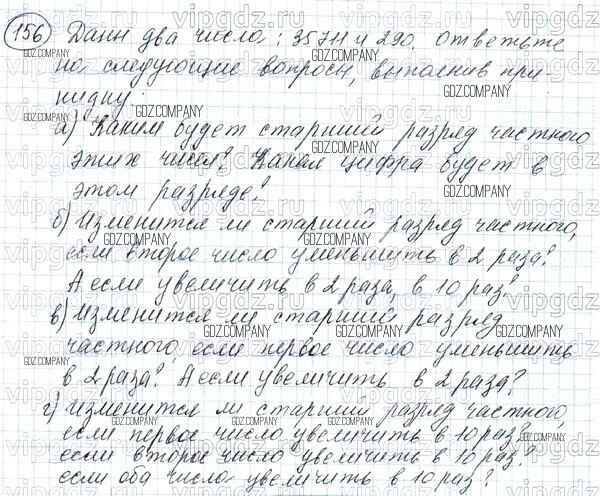 156 Даны два числа: 35711 и 290. Ответьте
на следующие вопросы, выполнив при
кидку.
а) Каким будет старший разряд частного
этих чисел? Какая цифра будет в
этом разряде?
б) Изменится ли старший разряд частного,
если второе число уменьшить в 2 раза?
А если увеличить в 2 раза, в 10 раз?
в) Изменится ли старший разряд
частного, если первое число уменьшить
в 2 раза? А если увеличить в 2 раза?
г) Изменится ли старший разряд частного,
если первое число увеличить в 10 раз?
если второе число увеличить в 10 раз?
если оба числа увеличить в 10 раз?
GDZ.COMPANY
vipgdz.ru